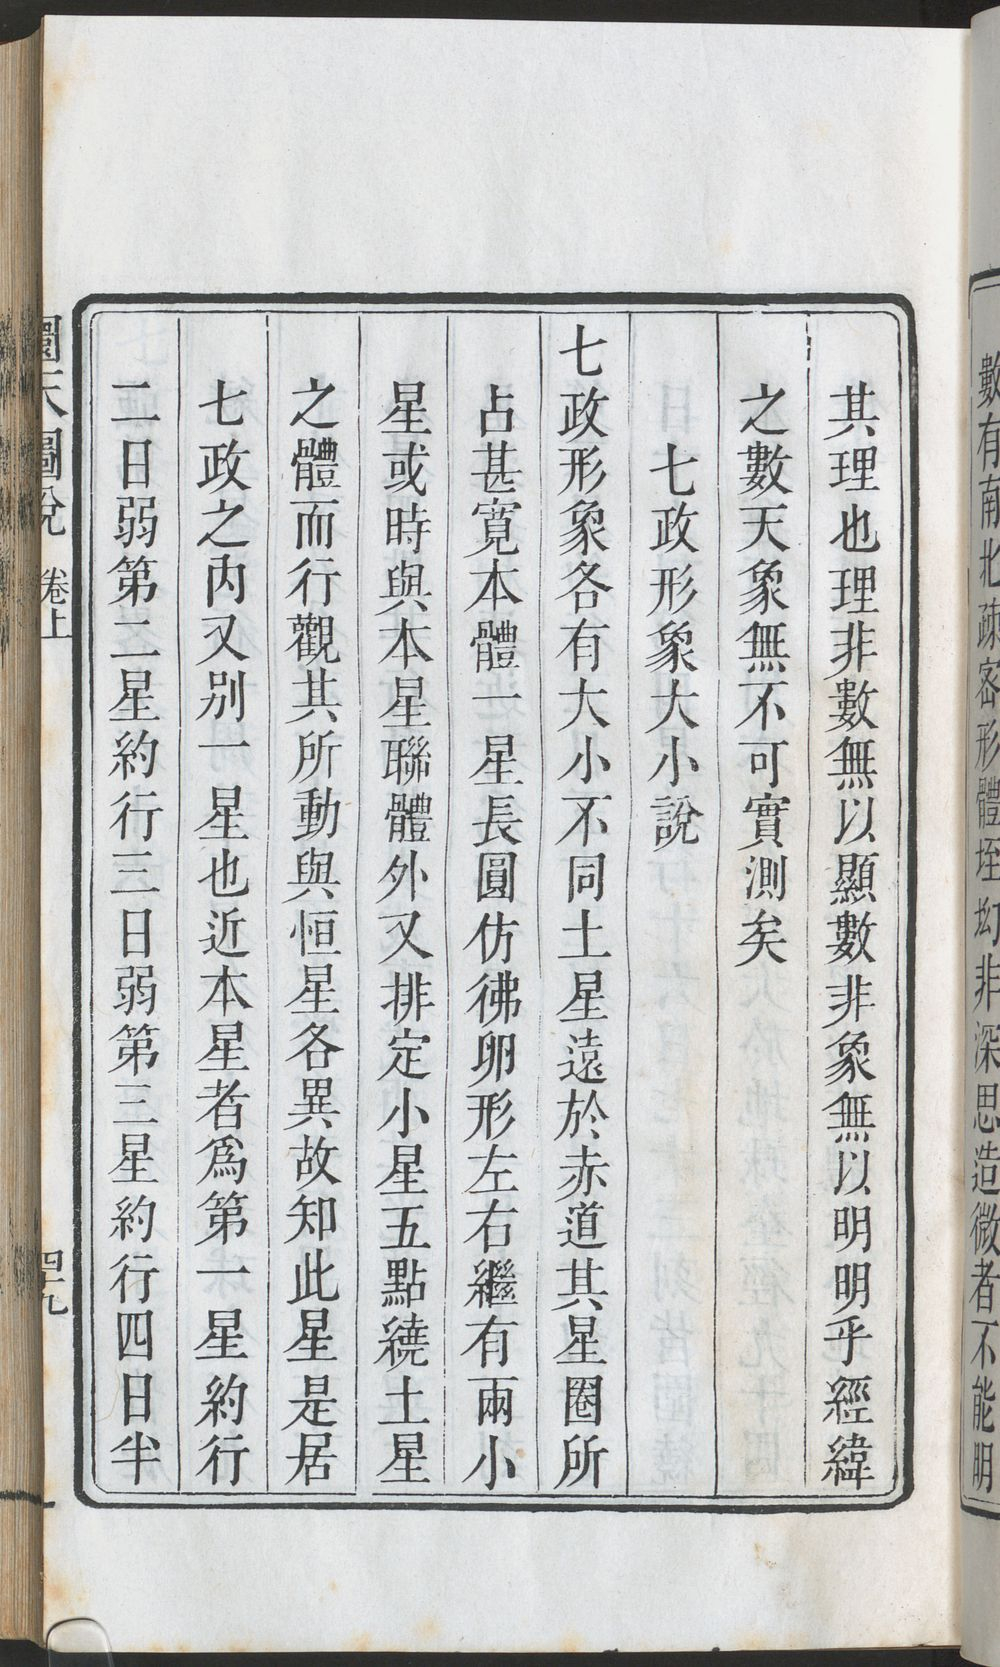 數有南北疎密形體垤㘭非深思造微者不能明
其理也理非數無以顯數非象無以明明乎經緯
之數天象無不可實測矣
七政形象大小說
七政形象各有大小不同土星遠於赤道其星圈所
占甚寬本體一星長圓仿彿卵形左右繼有兩小
星或時與本星聯體外又排定小星五點繞土星
之體而行觀其所動與恒星各異故知此星是居
七政之內又別一星也近本星者爲第一星約行
二日弱第二星約行三日弱第三星約行四日半
圜天圖說 卷上 四十九